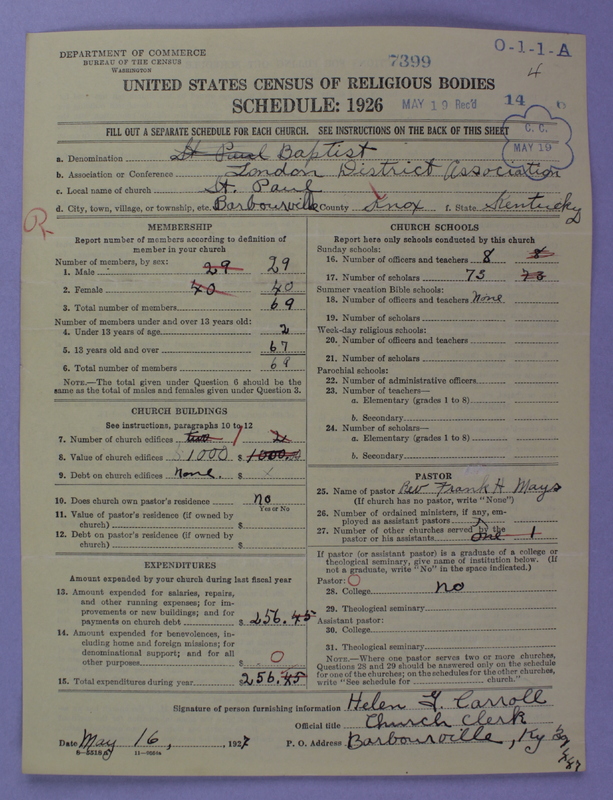 DEPARTMENT OF COMMERCE
BUREAU OF THE CENSUS
WASHINGTON
7399
O-1-1-A
4
UNITED STATES CENSUS OF RELIGIOUS BODIES
SCHEDULE: 1926
MAY 19 Rec'd
14
FILL OUT A SEPARATE SCHEDULE FOR EACH CHURCH. SEE INSTRUCTIONS ON THE BACK OF THIS SHEET
C. C.
MAY 19
a. Denomination St Paul Baptist
b. Association or Conference London District Association
c. Local name of church St. Paul
d. City, town, village, or township, etc. Barbourville County Knox f. State Kentucky
MEMBERSHIP
Report number of members according to definition of
member in your church
Number of members, by sex:
1. Male 29 29
2. Female 40 40
3. Total number of members 69
Number of members under and over 13 years old:
4. Under 13 years of age 2
5. 13 years old and over 67
6. Total number of members 69
NOTE.—The total given under Question 6 should be the
same as the total of males and females given under Question 3.
CHURCH BUILDINGS
See instructions, paragraphs 10 to 12
7. Number of church edifices two 1 2
8. Value of church edifices $1000 $ 1000.00
9. Debt on church edifices none. $
10. Does church own pastor's residence no
Yes or No
11. Value of pastor's residence (if owned by
church) $
12. Debt on pastor's residence (if owned by
church) $
EXPENDITURES
Amount expended by your church during last fiscal year
13. Amount expended for salaries, repairs,
and other running expenses; for im-
provements or new buildings; and for
payments on church debt $ 256.45
14. Amount expended for benevolences, in-
cluding home and foreign missions; for
denominational support; and for all
other purposes $ 0
15. Total expenditures during year $ 256.45
CHURCH SCHOOLS
Report here only schools conducted by this church
Sunday schools:
16. Number of officers and teachers 8 8
17. Number of scholars 75
Summer vacation Bible schools:
18. Number of officers and teachers none
19. Number of scholars
Week-day religious schools:
20. Number of officers and teachers
21. Number of scholars
Parochial schools:
22. Number of administrative officers
23. Number of teachers—
a. Elementary (grades 1 to 8)
b. Secondary
24. Number of scholars—
a. Elementary (grades 1 to 8)
b. Secondary
PASTOR
25. Name of pastor Rev Frank H Mays
(If church has no pastor, write "None")
26. Number of ordained ministers, if any, em-
ployed as assistant pastors
27. Number of other churches served by the
pastor or his assistants One 1
If pastor (or assistant pastor) is a graduate of a college or
theological seminary, give name of institution below. (If
not a graduate, write "No" in the space indicated.)
Pastor: O
28. College no
29. Theological seminary
Assistant pastor:
30. College
31. Theological seminary
NOTE.—Where one pastor serves two or more churches,
Questions 28 and 29 should be answered only on the schedule
for one of the churches; on the schedules for the other churches,
write "See schedule for church."
Signature of person furnishing information Helen F. Carroll
Official title Church Clerk
Date May 16, 1927 P. O. Address Barbourville, Ky